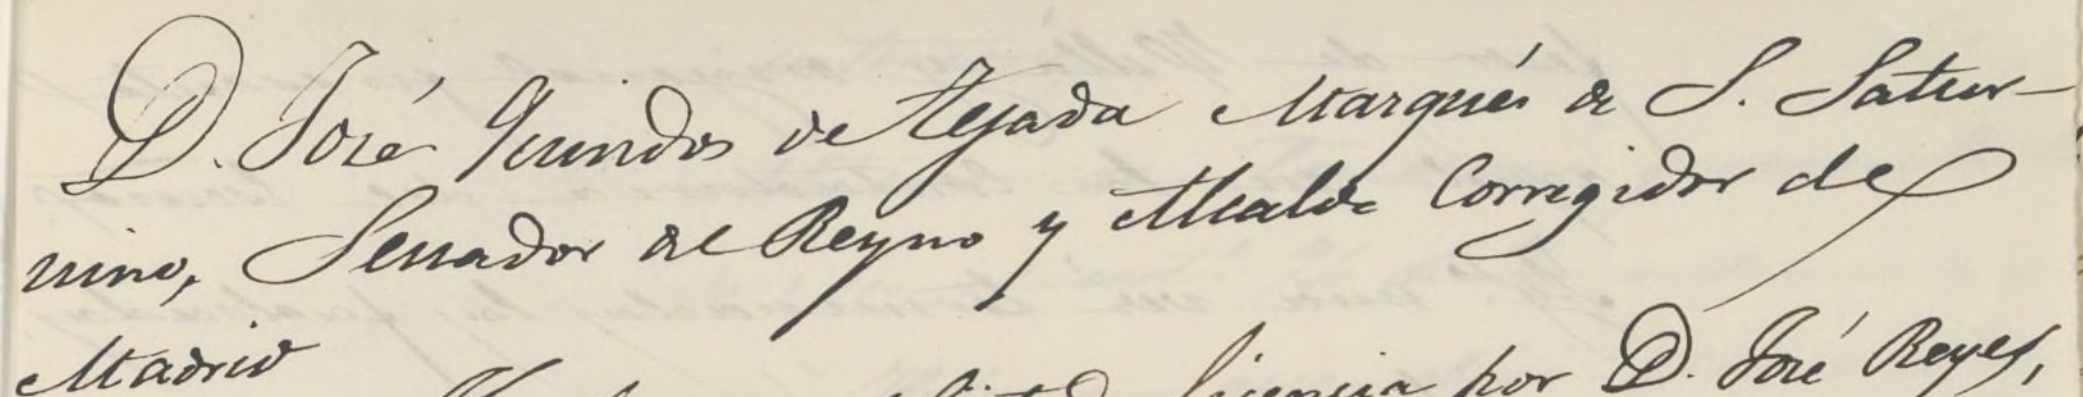 D. José Guindos de Tejada Marqués de S. Satur-
nino, Senador del Reyno y Alcalde Corregidor de
Madrid
licencia por D. José Reyes,